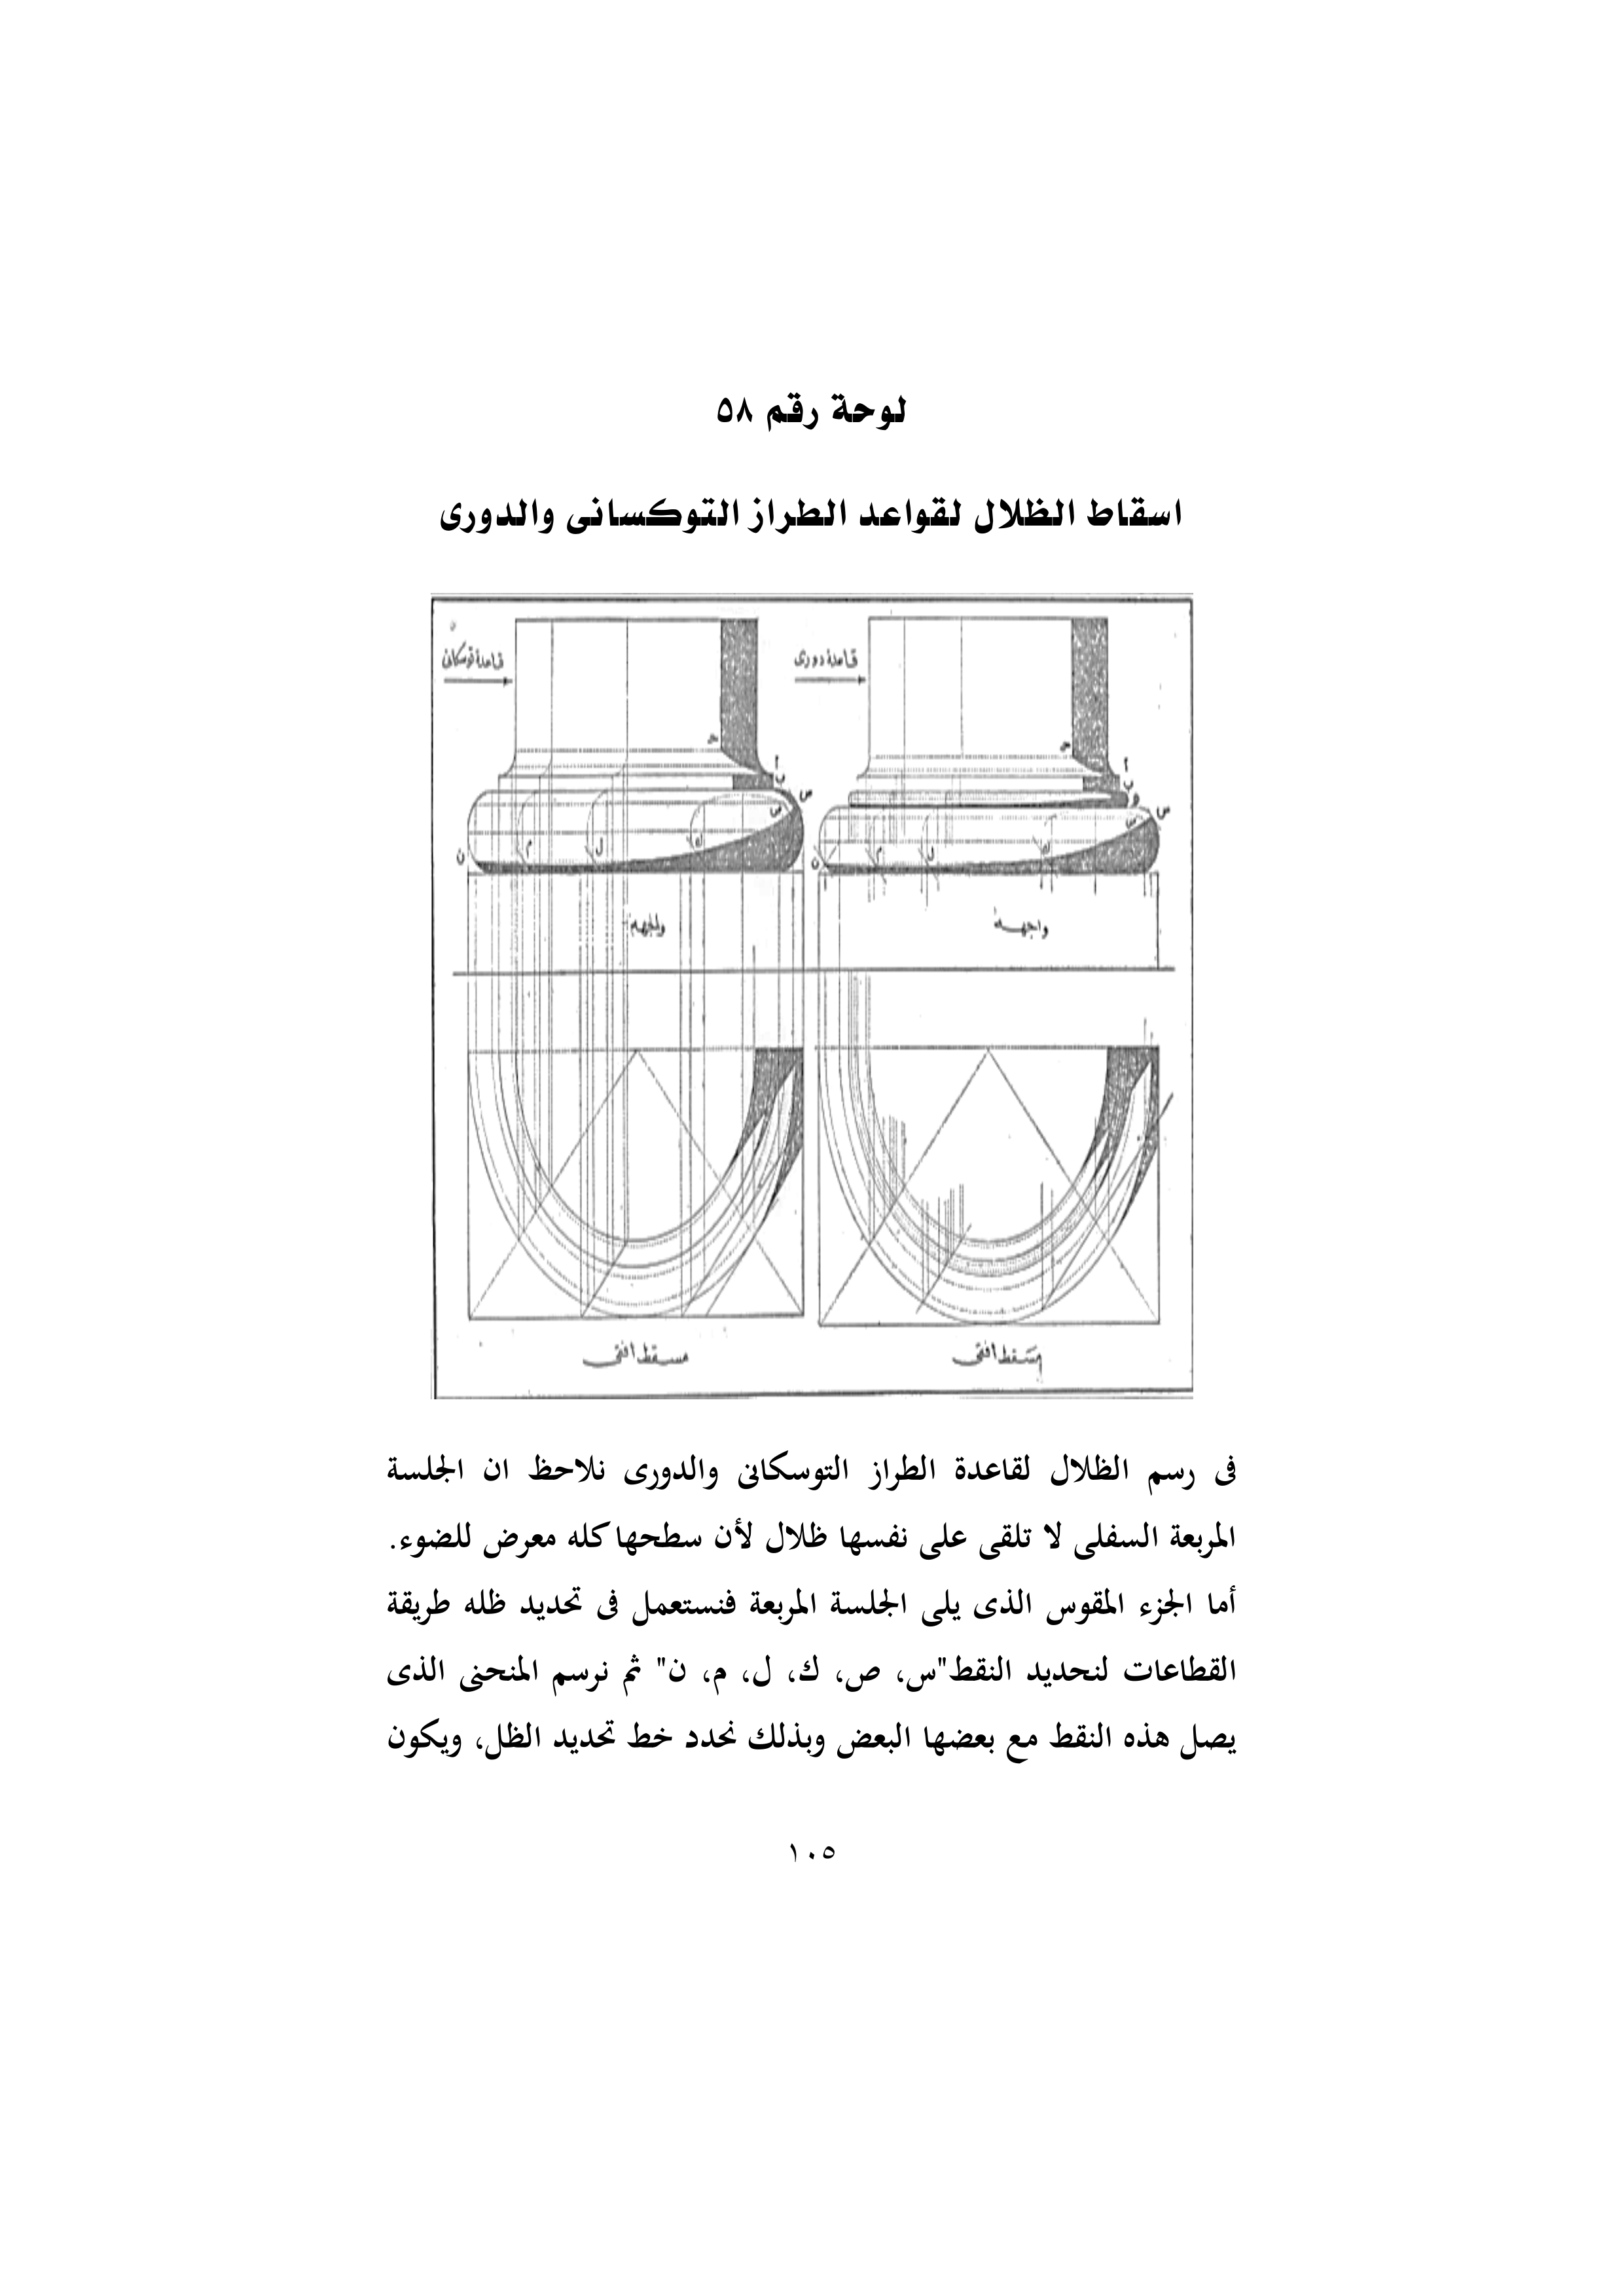 لوحة رقم ٥٨
اسقاط الظلال لقواعد الطراز التوكسانى والدورى
قاعدة توسكانى
قاعدة دورى
حـ
أ
ب
س
ص
ك
ل
م
ن
حـ
أ
ب
س
ك
ل
م
ن
واجهة
واجهة
مسقط افقى
مسقط افقى
فى رسم الظلال لقاعدة الطراز التوسكانى والدورى نلاحظ ان الجلسة
المربعة السفلى لا تلقى على نفسها ظلال لأن سطحها كله معرض للضوء.
أما الجزء المقوس الذى يلى الجلسة المربعة فنستعمل فى تحديد ظله طريقة
القطاعات لنحديد النقط"س، ص، ك، ل، م، ن" ثم نرسم المنحنى الذى
يصل هذه النقط مع بعضها البعض وبذلك نحدد خط تحديد الظل، ويكون
١٠٥